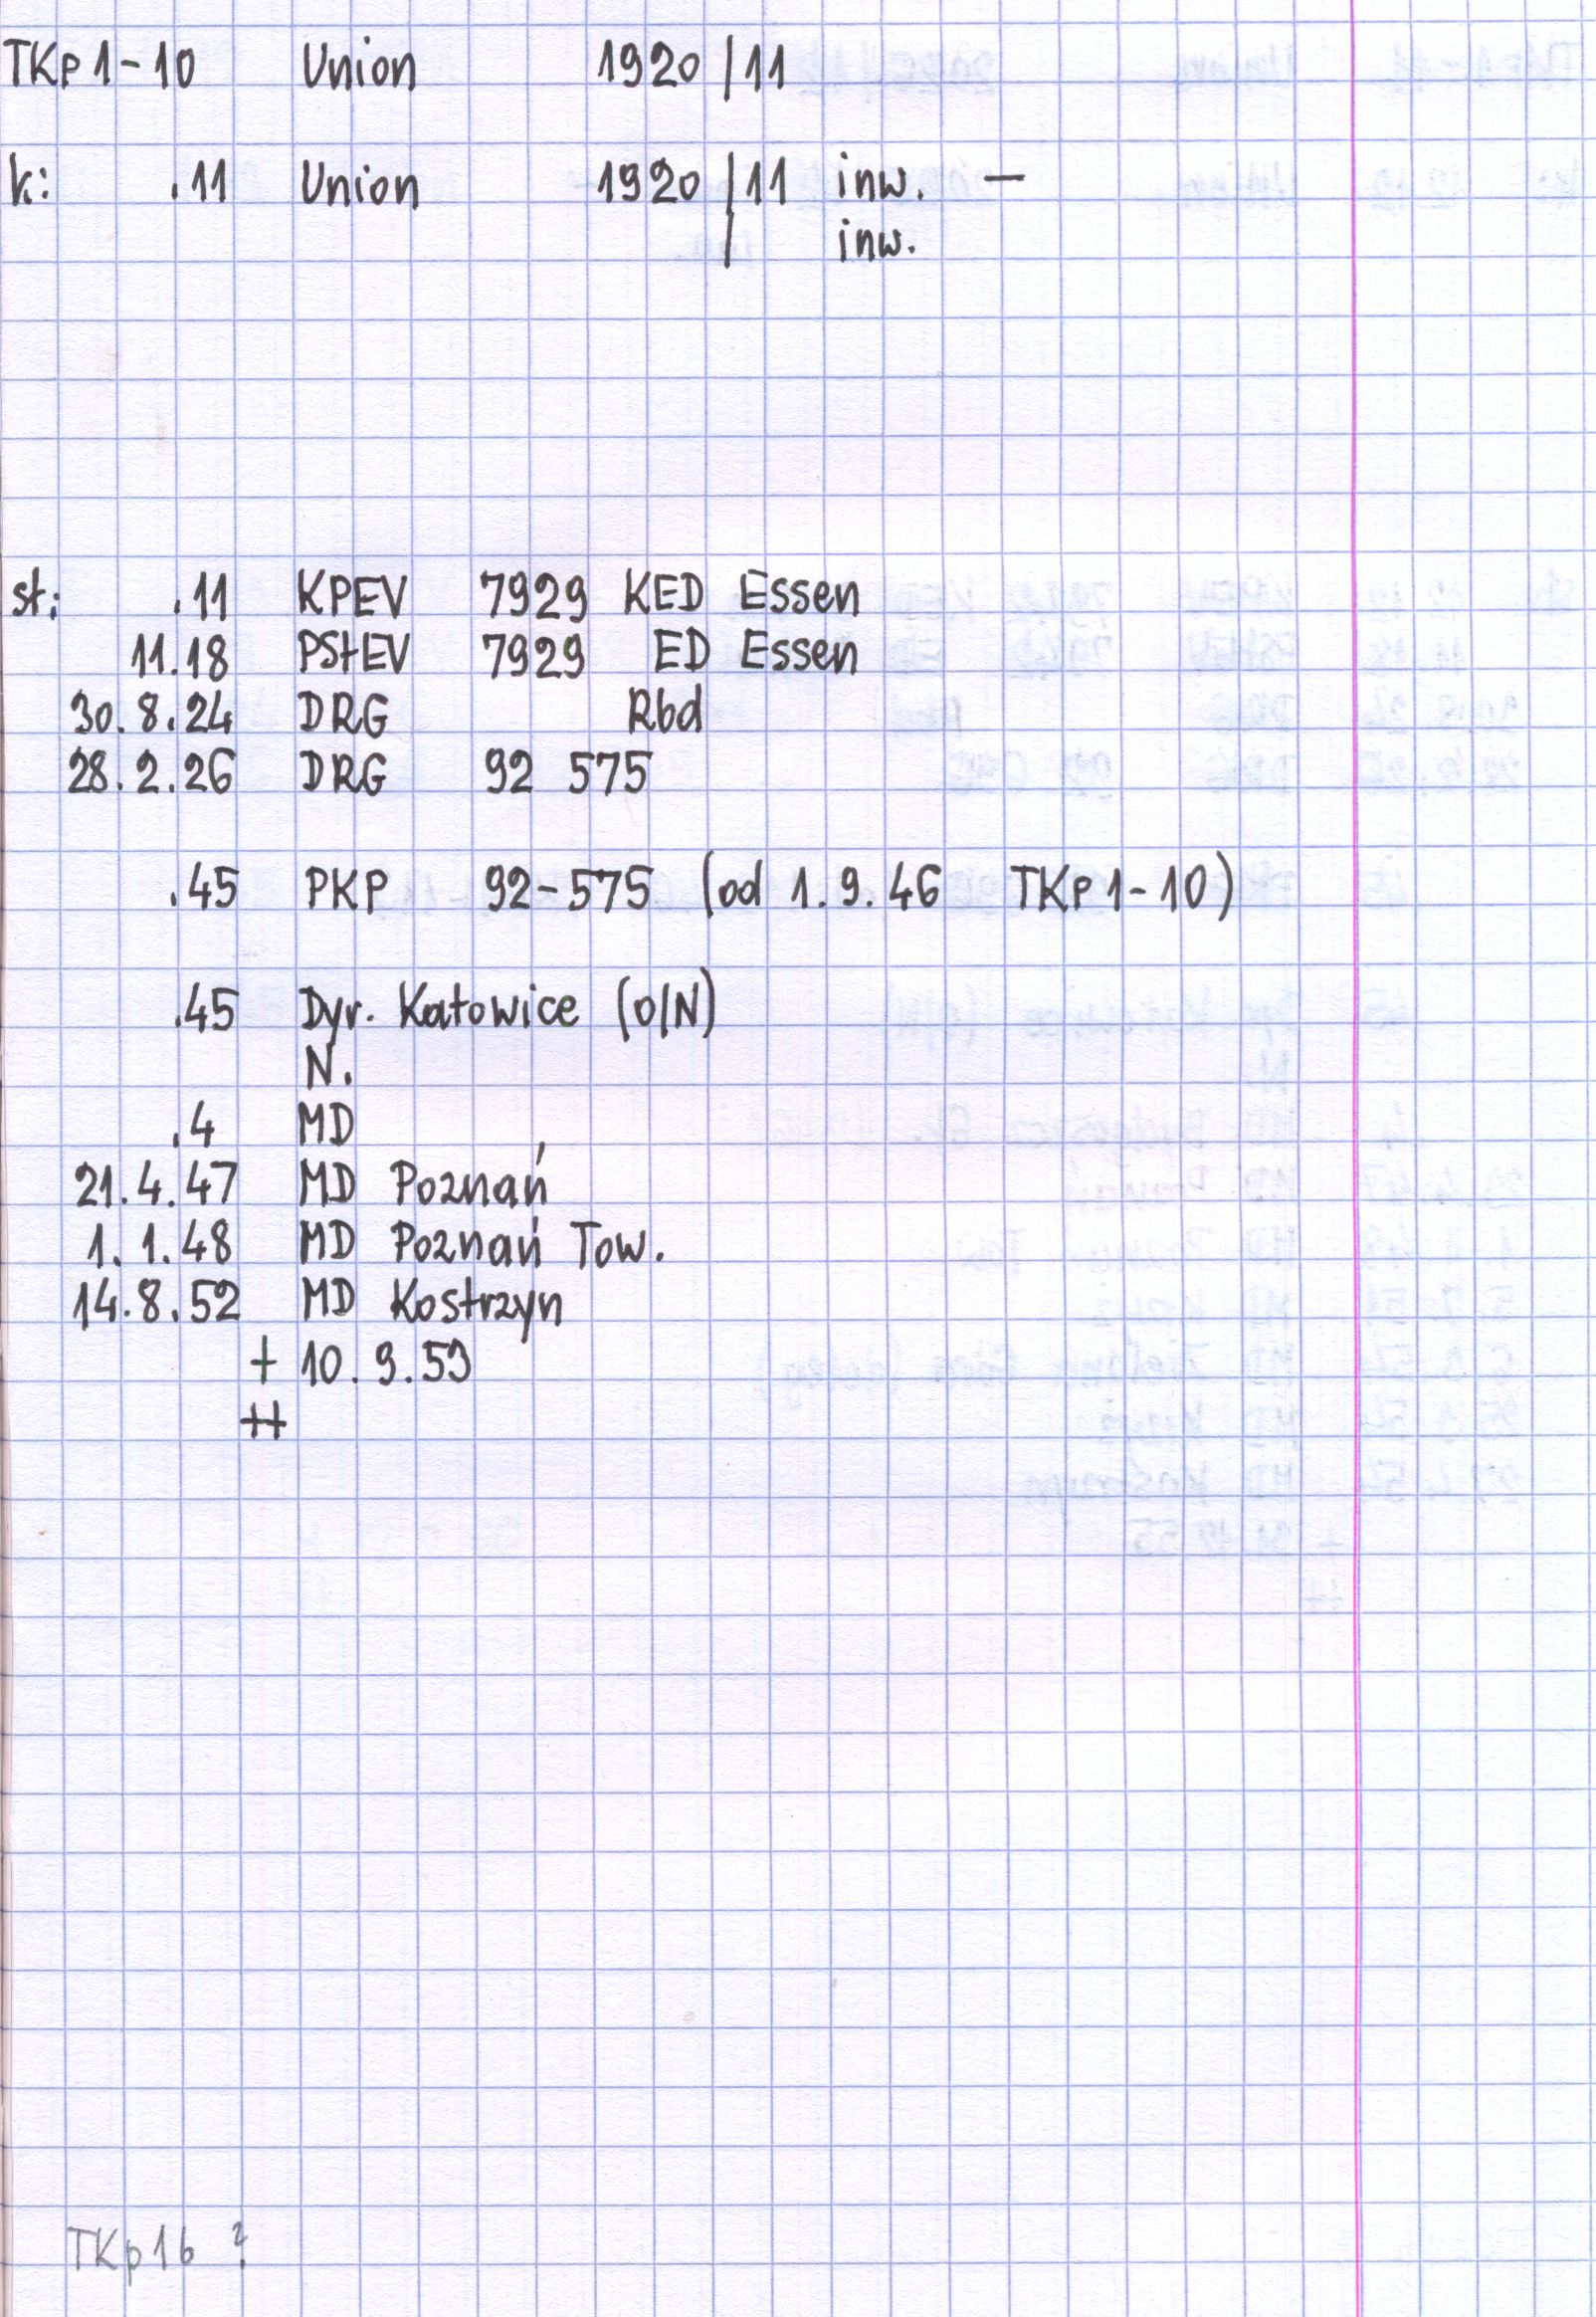 TKp1-10 Union 1920/11
k: .11 Union 1920/11 inw. —
/ inw.
st: .11 KPEV 7929 KED Essen
11.18 PStEV 7929 ED Essen
30.8.24 DRG Rbd
28.2.26 DRG 92 575
.45 PKP 92-575 (od 1.9.46 TKp1-10)
.45 Dyr. Katowice (O/N)
N.
.4 MD ,
21.4.47 MD Poznań
1.1.48 MD Poznań Tow.
14.8.52 MD Kostrzyn
+ 10.9.53
++
TKp1b ?